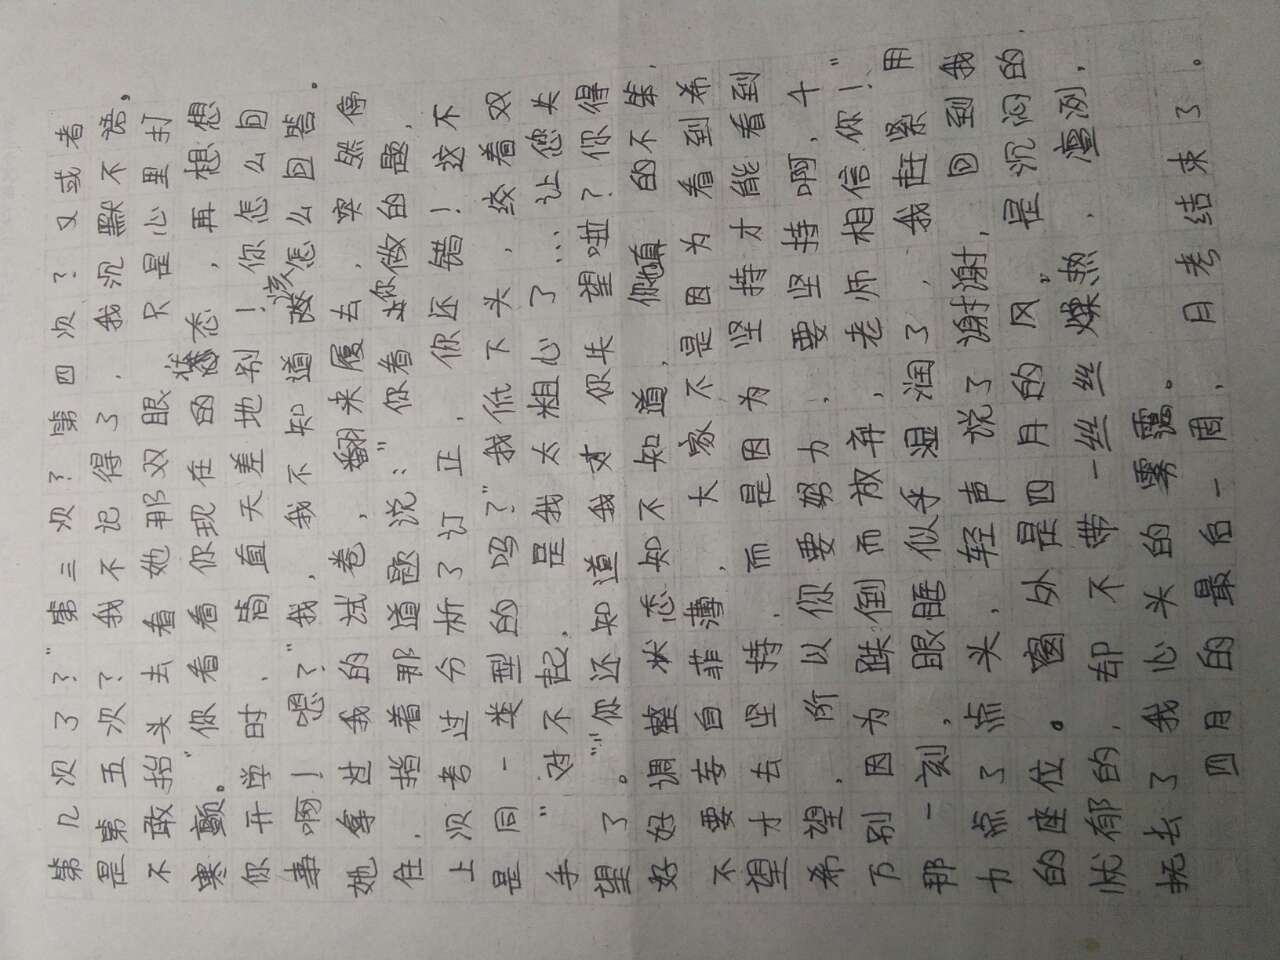 第几次了？"第三次？第四次？又或者
是第五次？我不记得了，我沉默不语，
不敢抬头去看她那双眼，只是心里打
寒颤。"你看看你现在的状态，再想想
你开学时，简直天差地别！你怎么回
事啊！嗯？"我，我不知道该怎么回答。
她拿过我的试卷，翻来履去，突然停
住，指着那道题说："你看你做的题，
上次考过分析了订正，你还错！这不
是同一类型的吗？"我低下头，绞着双
手"对不起，是我太粗心了…让您失
望了。""你还知道我对你失望啦？你得
好好调整状态知不知道，你真的不笨，
不要妄自菲薄，大家不是因为看到希
望才去坚持，而是因为坚持才能看到
希望，所以你要努力，要坚持啊，千
万别因为跌倒而放弃，老师相信你！"
那一刻，眼眶似乎湿润了，我赶紧用
力点了点头，轻声说了谢谢，回到我
的座位。窗外是四月的风。是沉闷的，
忧郁的，却不带一丝丝燥热，凛冽，
抚去了我心头的雾霭。
四月的最后一周，月考结束了。